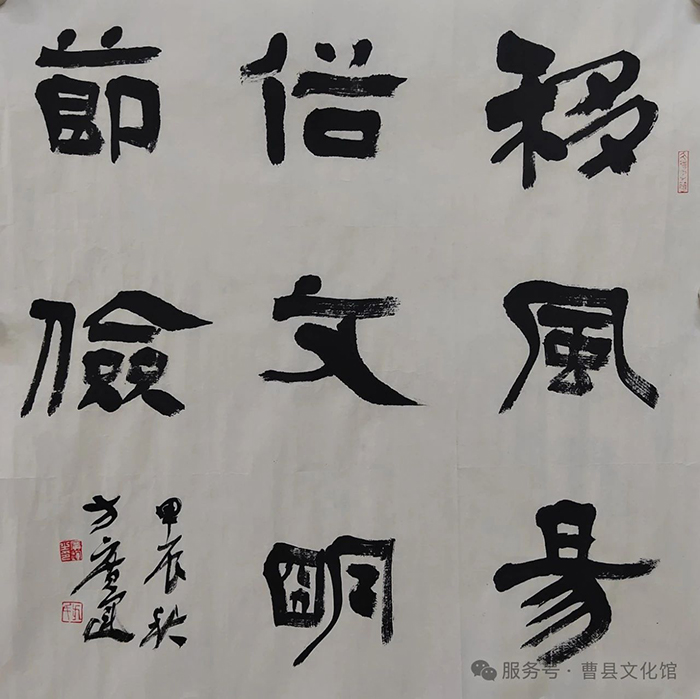 移風易
俗文朙
節儉
甲辰秋
方廣
服务号 · 曹县文化馆